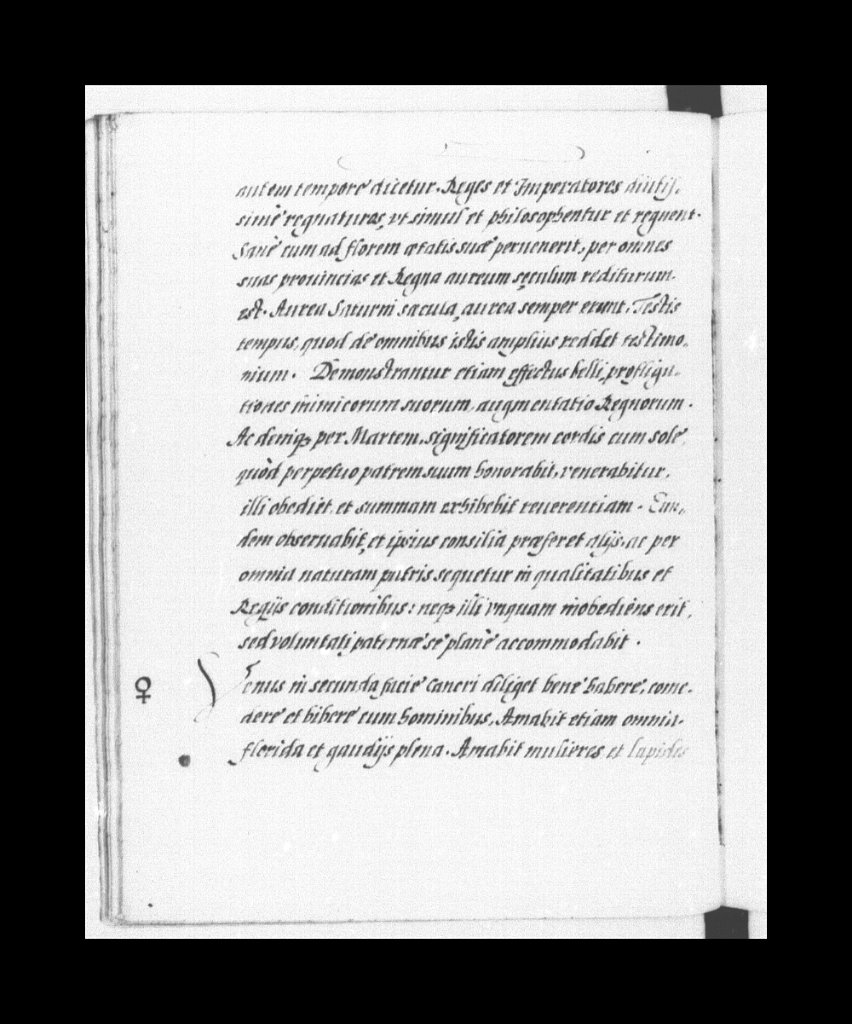 autem tempore dicetur. Reges et Imperatores diutis,
simè regnaturos, vt simul et philosophentur et regnent.
Sanè cum ad florem ætatis suæ peruenerit, per omnes
suas prouincias et Regna aureum sęculum rediturum
est. Aurea Saturni sæcula, aurea semper erunt. Testis
tempus, quod de omnibus istis amplius reddet testimo,
nium. Demonstrantur etiam effectus belli, profliga,
tiones inimicorum suorum, augmentatio Regnorum.
Ac deniqꝫ per Martem, significatorem cordis cum sole,
quòd perpetuo patrem suum honorabit, venerabitur,
illi obediet, et summam exhibebit reuerentiam. Eun,
dem obseruabit, et ipsius consilia præferet alijs, ac per
omnia naturam patris sequetur in qualitatibus et
Regijs conditionibus: neqꝫ illi vnquam inobediens erit,
sed voluntati paternæ se planè accommodabit.
♀ Venus in secunda facie Cancri diliget benè habere, come,
dere et bibere cum hominibus, Amabit etiam omnia
florida et gaudijs plena. Amabit mulieres et lapides